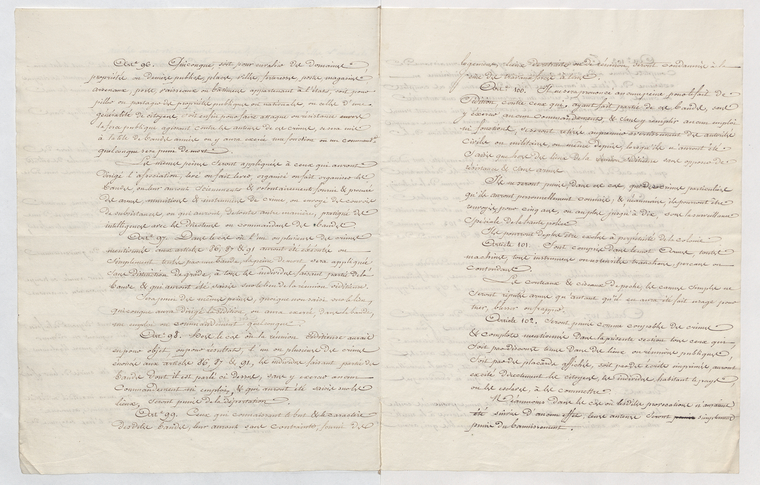 Art.e 96. Quiconque, soit pour envahir des domaines,
propriétés ou deniers publics, places, villes, forteresses, postes, magasins
arsenaux, ports, vaisseaux ou bâtimens appartenant à l'état, soit pour
piller ou partager des propriétés publiques ou nationales, ou celles d'une
généralité de citoyens, soit enfin pour faire attaque ou résistance envers
la force publique agissant contre les auteurs de ces crimes, se sera mis
à la tête de bandes armées ou y aura exercé une fonction ou un command.t
quelconque, sera puni de mort.
Les mêmes peines seront appliquées à ceux qui auront
dirigé l'association, levé ou fait lever, organisé ou fait organiser les
bandes ou leur auront sciemment & volontairement fourni & procuré
des armes, munitions & instrumens de crime, ou envoyé des convois
de subsistances, ou qui auront, de toute autre manière, pratiqué des
intelligences avec les directeurs ou commandans des bandes.
Art.e 97. Dans le cas où l'un ou plusieurs des crimes
mentionnés aux articles 86, 87 & 91 auront été exécutés ou
simplement tentés par une bande, la peine de mort sera appliquée
sans distinction de grades, à tous les individus faisant partie de la
bande & qui auront été saisis sur le lieu de la réunion séditieuse.
Sera puni des mêmes peines, quoique non saisi sur le lieu,
quiconque aura dirigé la sédition, ou aura exercé dans la bande,
un emploi ou commandement quelconque.
Art.e 98. Hors le cas où la réunion séditieuse aurait
eu pour objet ou pour résultat, l'un ou plusieurs des crimes
énoncés aux articles 86, 87 & 91, les individus faisant partie des
bandes dont il est parlé ci-dessus, sans y exercer aucun
commandement ni emploi, & qui auront été saisis sur les
lieux, seront punis de la déportation.
Art.e 99. Ceux qui connaissant le but & le caractère
desdites bandes, leur auront sans contrainte, fourni des
logemens, lieux de retraite ou de réunion seront condamnés à la
peine des travaux forcés à tems.
Art.e 100. Il ne sera prononcé aucune peine pour le fait de
sédition contre ceux qui, ayant fait partie de ces bandes, sans
y exercer aucun commandement, & sans y remplir aucun emploi
ni fonctions, se seront retirés au premier avertissement des autorités
civiles ou militaires ou même depuis, lorsqu'ils n'auront été
saisis que hors des lieux de la réunion séditieuse sans opposer de
résistance & sans armes.
Ils ne seront punis dans ce cas, que des crimes particuliers
qu'ils auront personnellement commis, & néanmoins ils pourront être
renvoyés, pour cinq ans, ou au plus jusqu'à dix, sous la surveillance
spéciale de la haute police.
Article 101. Sont compris dans le mot Armes, toutes
machines, tous instrumens ou ustensiles tranchans, perçans ou
contondans.
Les couteaux & ciseaux de poche, les cannes simples ne
seront réputés armes qu'autant qu'il en aura été fait usage pour
tuer, blesser ou frapper.
Article 102. Seront punis comme coupables des crimes
& complots mentionnés dans la présente section tous ceux qui,
soit par discours tenus dans des lieux ou réunions publiques,
soit par placards affichés, soit par des écrits imprimés, auront
excité directement les citoyens, les individus, habitans du pays
ou les, à les commettre.
Néanmoins dans le cas où lesdites provocations n'auraient
été suivies d'aucun effet, leurs auteurs seront simplement
punis du bannissement.